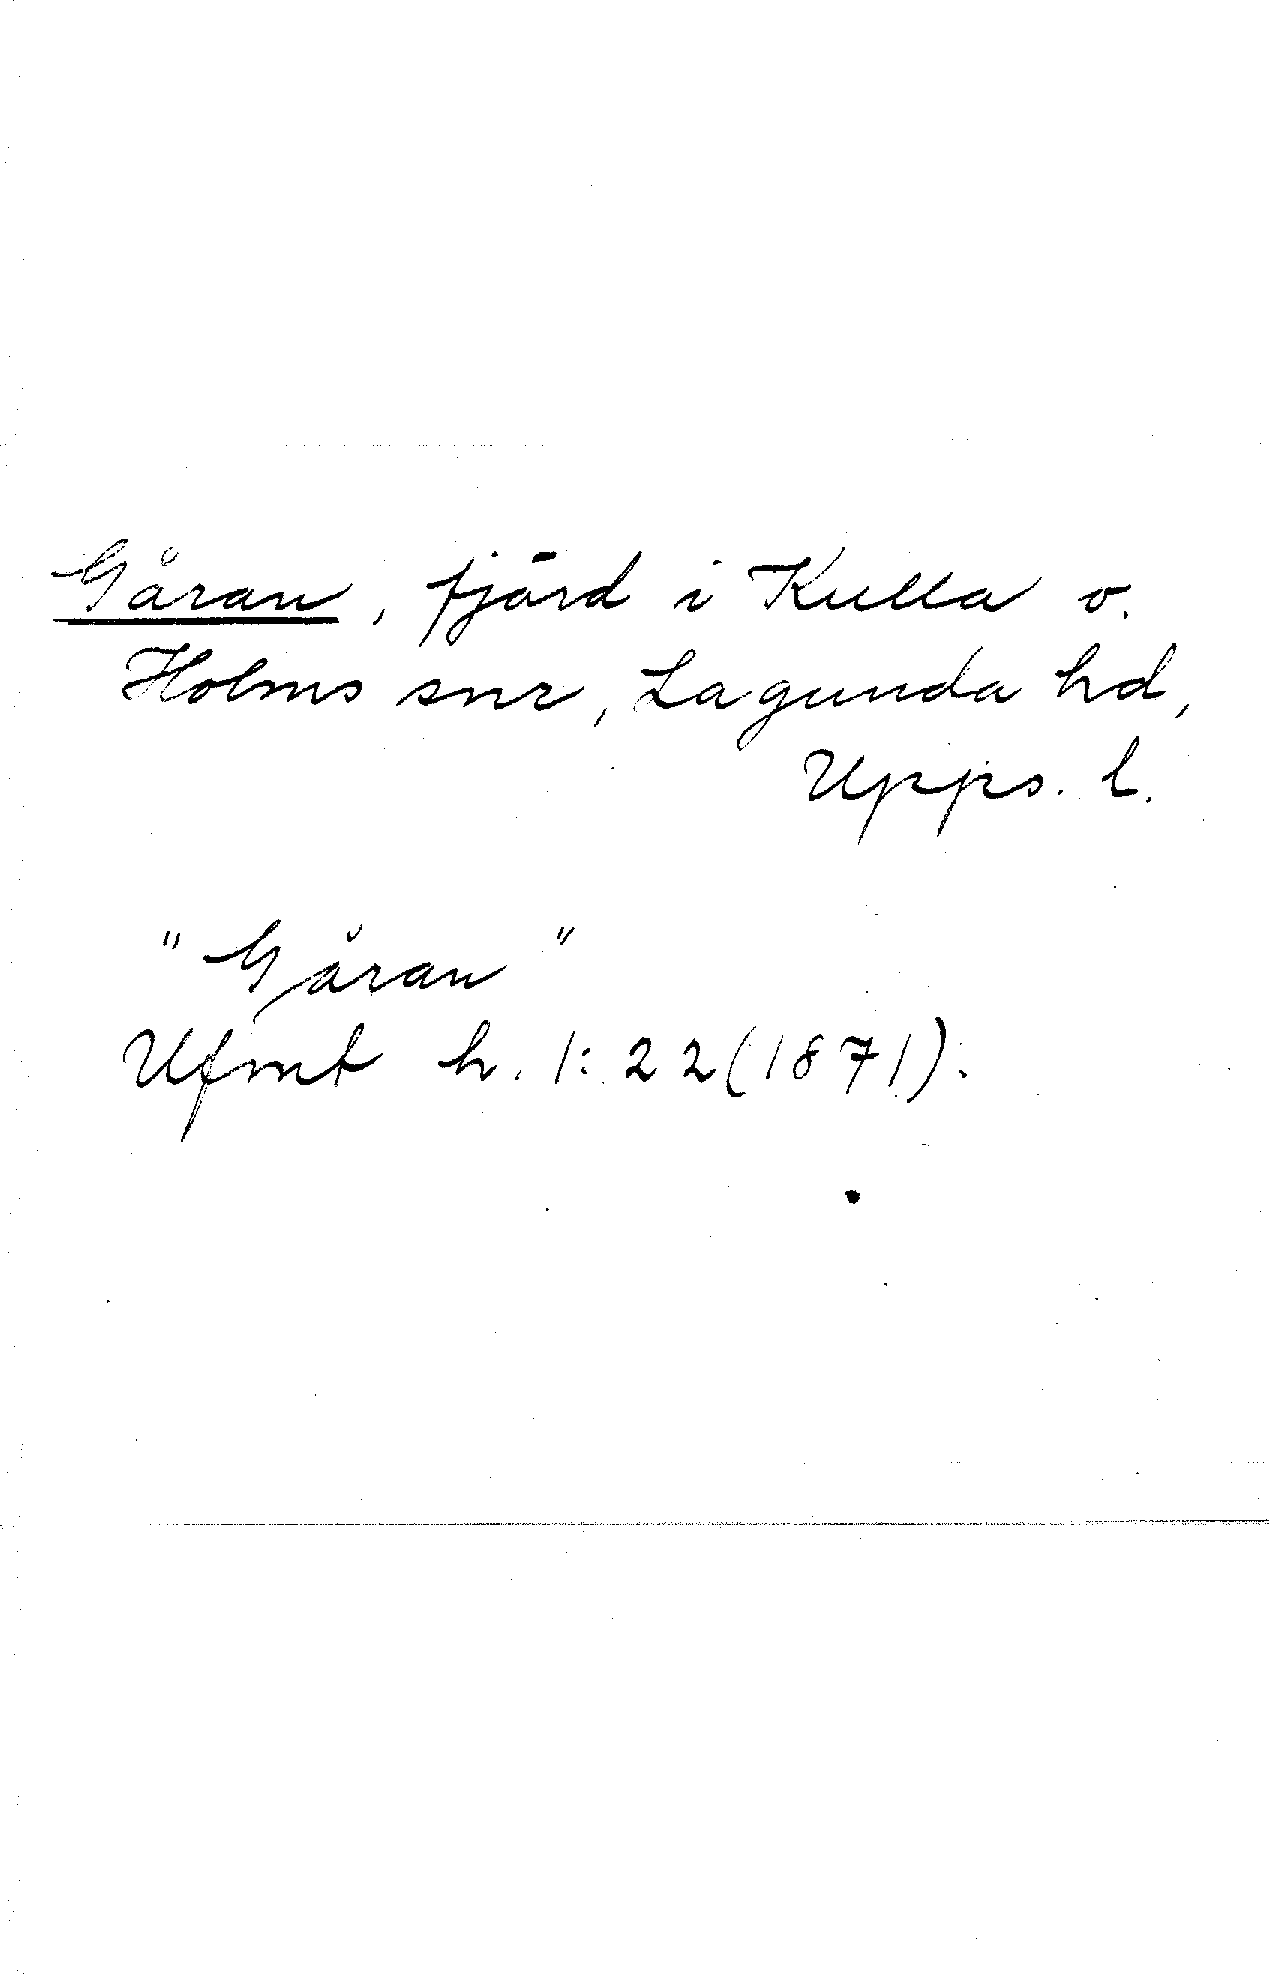 Gåran, fjärd i Kulla o.
Holms snr, Lagunda hd,
Upps. l.
"Gåran"
Ufmt h. 1: 22 (1871).